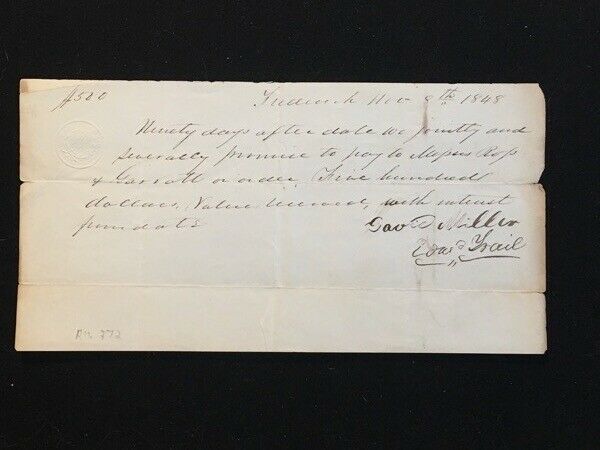 $500
Frederick Nov 9th 1848
Ninety days after date we jointly and
severally promise to pay to Messrs Ross
& Garrott or order Five hundred
dollars, Value received, with interest
from date
Dav D. Miller
Edwd Trail